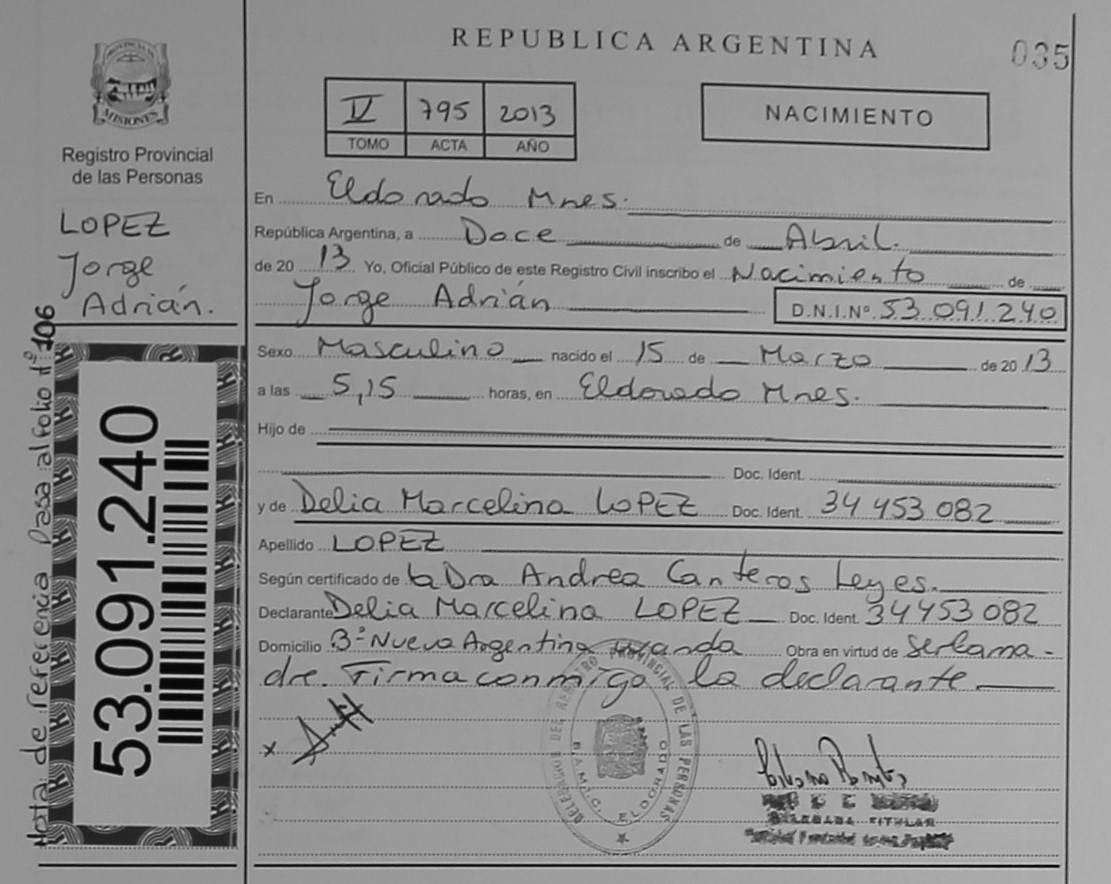 REPUBLICA ARGENTINA
035
PROVINCIA DE
MISIONES
Registro Provincial
de las Personas
LOPEZ
Jorge
Adrián.
Nota de referencia Pasa al folio nº 106
53.091.240
IV 795 2013
TOMO ACTA AÑO
NACIMIENTO
En Eldorado Mnes.
República Argentina, a Doce de Abril.
de 20 13 Yo, Oficial Público de este Registro Civil inscribo el Nacimiento de
Jorge Adrián D.N.I.Nº 53.091.240
Sexo Masculino nacido el 15 de Marzo de 20 13
a las 5,15 horas, en Eldorado Mnes.
Hijo de
Doc. Ident.
y de Delia Marcelina LOPEZ Doc. Ident. 34 453 082
Apellido LOPEZ
Según certificado de la Dra Andrea Canteros Leyes.
Declarante Delia Marcelina LOPEZ Doc. Ident. 34453082
Domicilio Bº Nueva Argentina Wanda Obra en virtud de Ser la ma-
dre. Firma conmigo la declarante
x
DELEGACION DEL REGISTRO PROVINCIAL DE LAS PERSONAS
ELDORADO
DELEGADA TITULAR